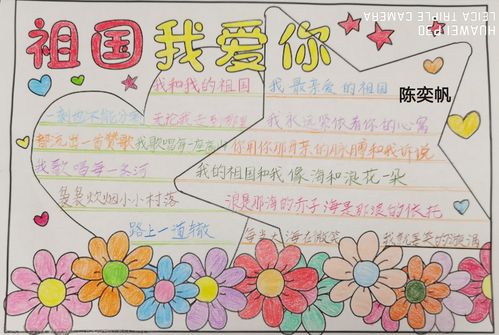 祖国我爱你
HUAWEI P30
LEICA TRIPLE CAMERA
陈奕帆
我和我的祖国 我最亲爱的祖国
一刻也不能分割 无论我走到哪里 我永远紧依着你的心窝
都流出一首赞歌 我歌唱每一座高山 你用你那母亲的脉搏和我诉说
我歌唱每一条河 我的祖国和我 像海和浪花一朵
袅袅炊烟小小村落 浪是那海的赤子 海是那浪的依托
路上一道辙 每当大海在微笑 我就是笑的漩涡